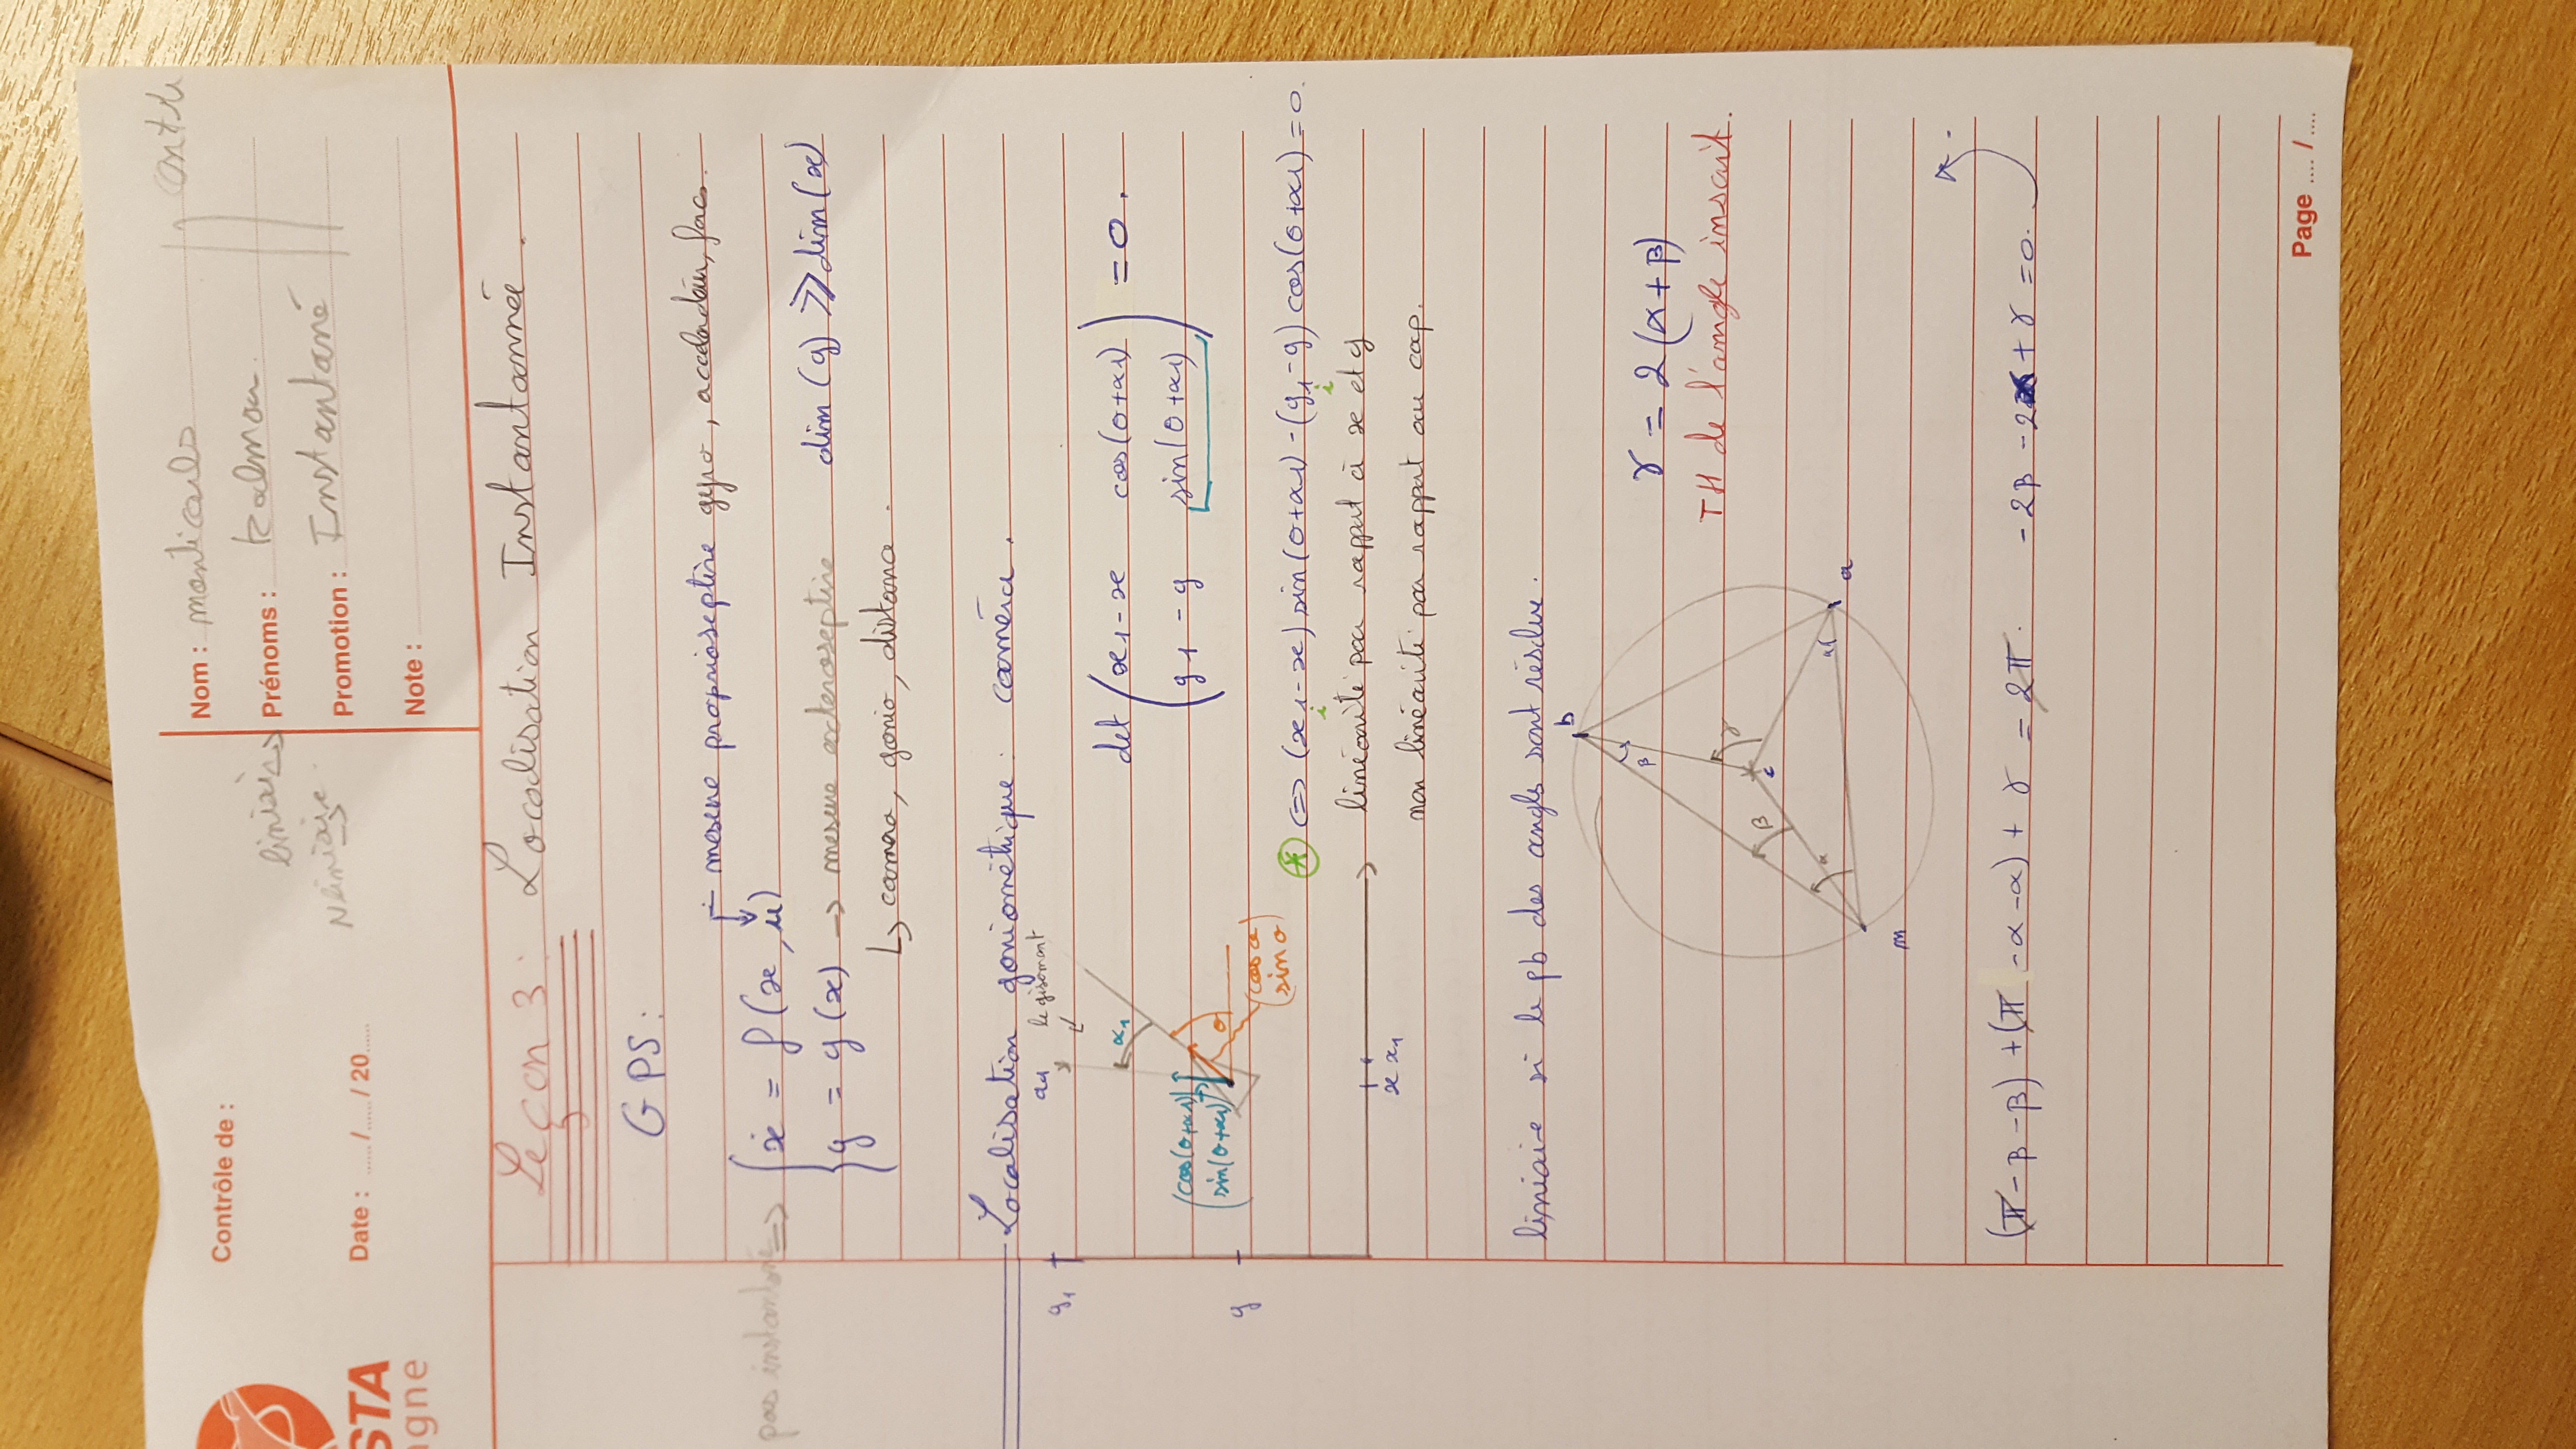 Contrôle de :
Date : ...... /...... / 20......
STA
agne
liniai ->
Nliniaire ->
Nom : monticarlo
Prénoms : Kalman
Promotion : Instantané
Note :
Leçon 3 : Localisation Instantannée.
GPS :
mesure proprioseptive gyro,
pas instantané => ẋ = f(x, u)
y = g(x) -> mesure exteroseptive dim(y) >> dim(x)
↳ camera, gonio, distance.
Localisation goniométrique : caméra.
y1
a1 le gisement
α1
det (x1-x cos(θ+α1)
y1-y sin(θ+α1)) = 0.
(cos(θ+α1)
sin(θ+α1))
θ
y
(cos θ
sin θ)
* <=> (x1-x) sin(θ+α1) - (y1-y) cos(θ+α1) = 0.
i i
linéarité par rapport à x et y
x x1
non linéarité par rapport au cap.
liniaire si le pb des angles sont résolue.
b
β
γ = 2(α+β)
TH de l'angle inscrit.
γ
β
c
α
α
a
m
(π-β-β) + (π-α-α) + γ = 2π. -2β-2α+γ=0.
Page .... / ....